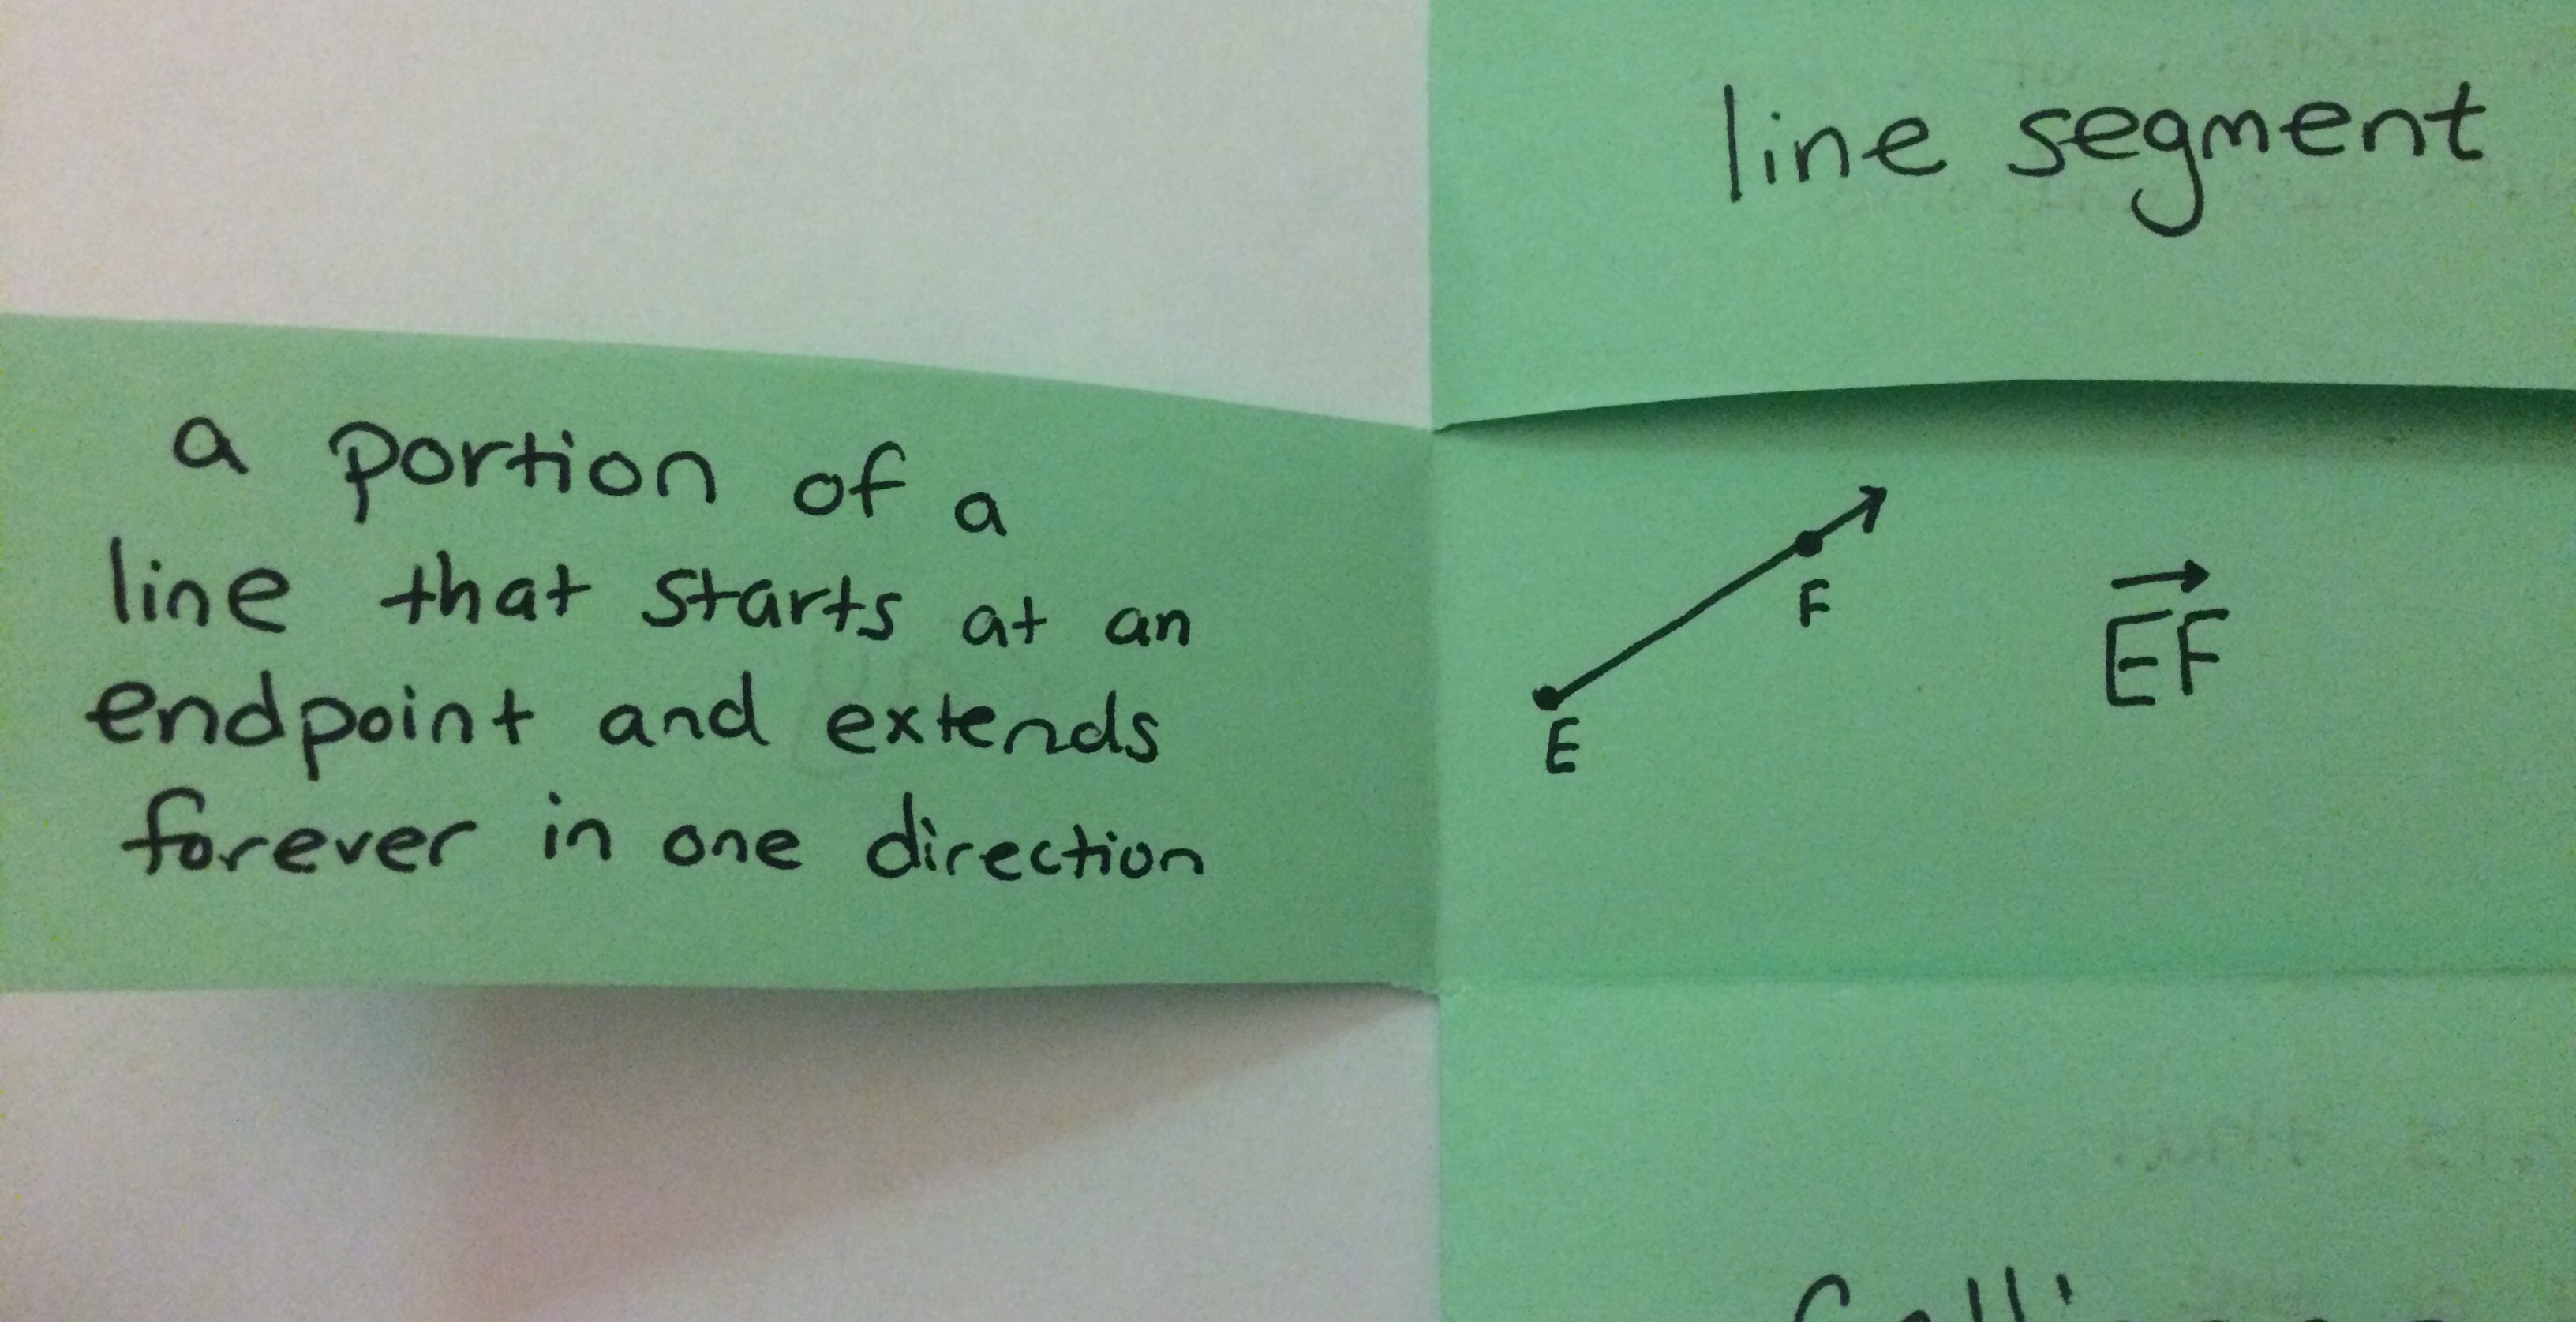 line segment
a portion of a
line that starts at an
endpoint and extends
forever in one direction
F
E
EF